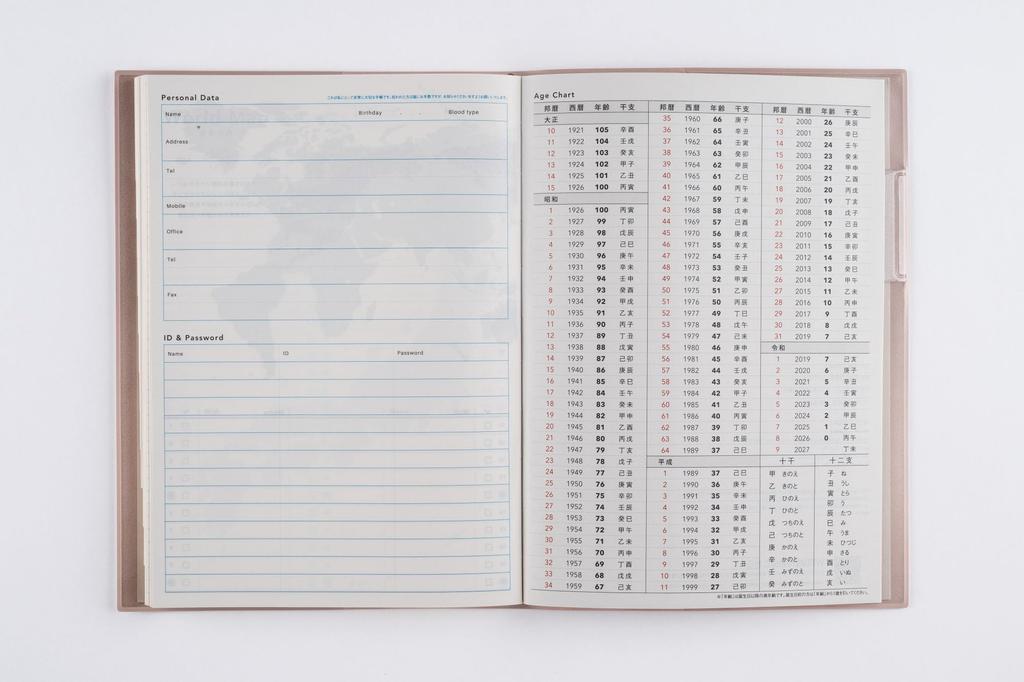 Personal Data
これは私にとって非常に大切な手帳です。拾われた方は誠にお手数ですが、お知らせくださいますようお願いいたします。
Name Birthday . . Blood type
Address
Tel
Mobile
Office
Tel
Fax
ID & Password
Name ID Password
Age Chart
邦暦 西暦 年齢 干支
大正
10 1921 105 辛酉
11 1922 104 壬戌
12 1923 103 癸亥
13 1924 102 甲子
14 1925 101 乙丑
15 1926 100 丙寅
昭和
1 1926 100 丙寅
2 1927 99 丁卯
3 1928 98 戊辰
4 1929 97 己巳
5 1930 96 庚午
6 1931 95 辛未
7 1932 94 壬申
8 1933 93 癸酉
9 1934 92 甲戌
10 1935 91 乙亥
11 1936 90 丙子
12 1937 89 丁丑
13 1938 88 戊寅
14 1939 87 己卯
15 1940 86 庚辰
16 1941 85 辛巳
17 1942 84 壬午
18 1943 83 癸未
19 1944 82 甲申
20 1945 81 乙酉
21 1946 80 丙戌
22 1947 79 丁亥
23 1948 78 戊子
24 1949 77 己丑
25 1950 76 庚寅
26 1951 75 辛卯
27 1952 74 壬辰
28 1953 73 癸巳
29 1954 72 甲午
30 1955 71 乙未
31 1956 70 丙申
32 1957 69 丁酉
33 1958 68 戊戌
34 1959 67 己亥
邦暦 西暦 年齢 干支
35 1960 66 庚子
36 1961 65 辛丑
37 1962 64 壬寅
38 1963 63 癸卯
39 1964 62 甲辰
40 1965 61 乙巳
41 1966 60 丙午
42 1967 59 丁未
43 1968 58 戊申
44 1969 57 己酉
45 1970 56 庚戌
46 1971 55 辛亥
47 1972 54 壬子
48 1973 53 癸丑
49 1974 52 甲寅
50 1975 51 乙卯
51 1976 50 丙辰
52 1977 49 丁巳
53 1978 48 戊午
54 1979 47 己未
55 1980 46 庚申
56 1981 45 辛酉
57 1982 44 壬戌
58 1983 43 癸亥
59 1984 42 甲子
60 1985 41 乙丑
61 1986 40 丙寅
62 1987 39 丁卯
63 1988 38 戊辰
64 1989 37 己巳
平成
1 1989 37 己巳
2 1990 36 庚午
3 1991 35 辛未
4 1992 34 壬申
5 1993 33 癸酉
6 1994 32 甲戌
7 1995 31 乙亥
8 1996 30 丙子
9 1997 29 丁丑
10 1998 28 戊寅
11 1999 27 己卯
邦暦 西暦 年齢 干支
12 2000 26 庚辰
13 2001 25 辛巳
14 2002 24 壬午
15 2003 23 癸未
16 2004 22 甲申
17 2005 21 乙酉
18 2006 20 丙戌
19 2007 19 丁亥
20 2008 18 戊子
21 2009 17 己丑
22 2010 16 庚寅
23 2011 15 辛卯
24 2012 14 壬辰
25 2013 13 癸巳
26 2014 12 甲午
27 2015 11 乙未
28 2016 10 丙申
29 2017 9 丁酉
30 2018 8 戊戌
31 2019 7 己亥
令和
1 2019 7 己亥
2 2020 6 庚子
3 2021 5 辛丑
4 2022 4 壬寅
5 2023 3 癸卯
6 2024 2 甲辰
7 2025 1 乙巳
8 2026 0 丙午
9 2027 丁未
十干
甲 きのえ
乙 きのと
丙 ひのえ
丁 ひのと
戊 つちのえ
己 つちのと
庚 かのえ
辛 かのと
壬 みずのえ
癸 みずのと
十二支
子 ね
丑 うし
寅 とら
卯 う
辰 たつ
巳 み
午 うま
未 ひつじ
申 さる
酉 とり
戌 いぬ
亥 い
※「年齢」は誕生日以降の満年齢です。誕生日前の方は「年齢」から1歳を引いてください。